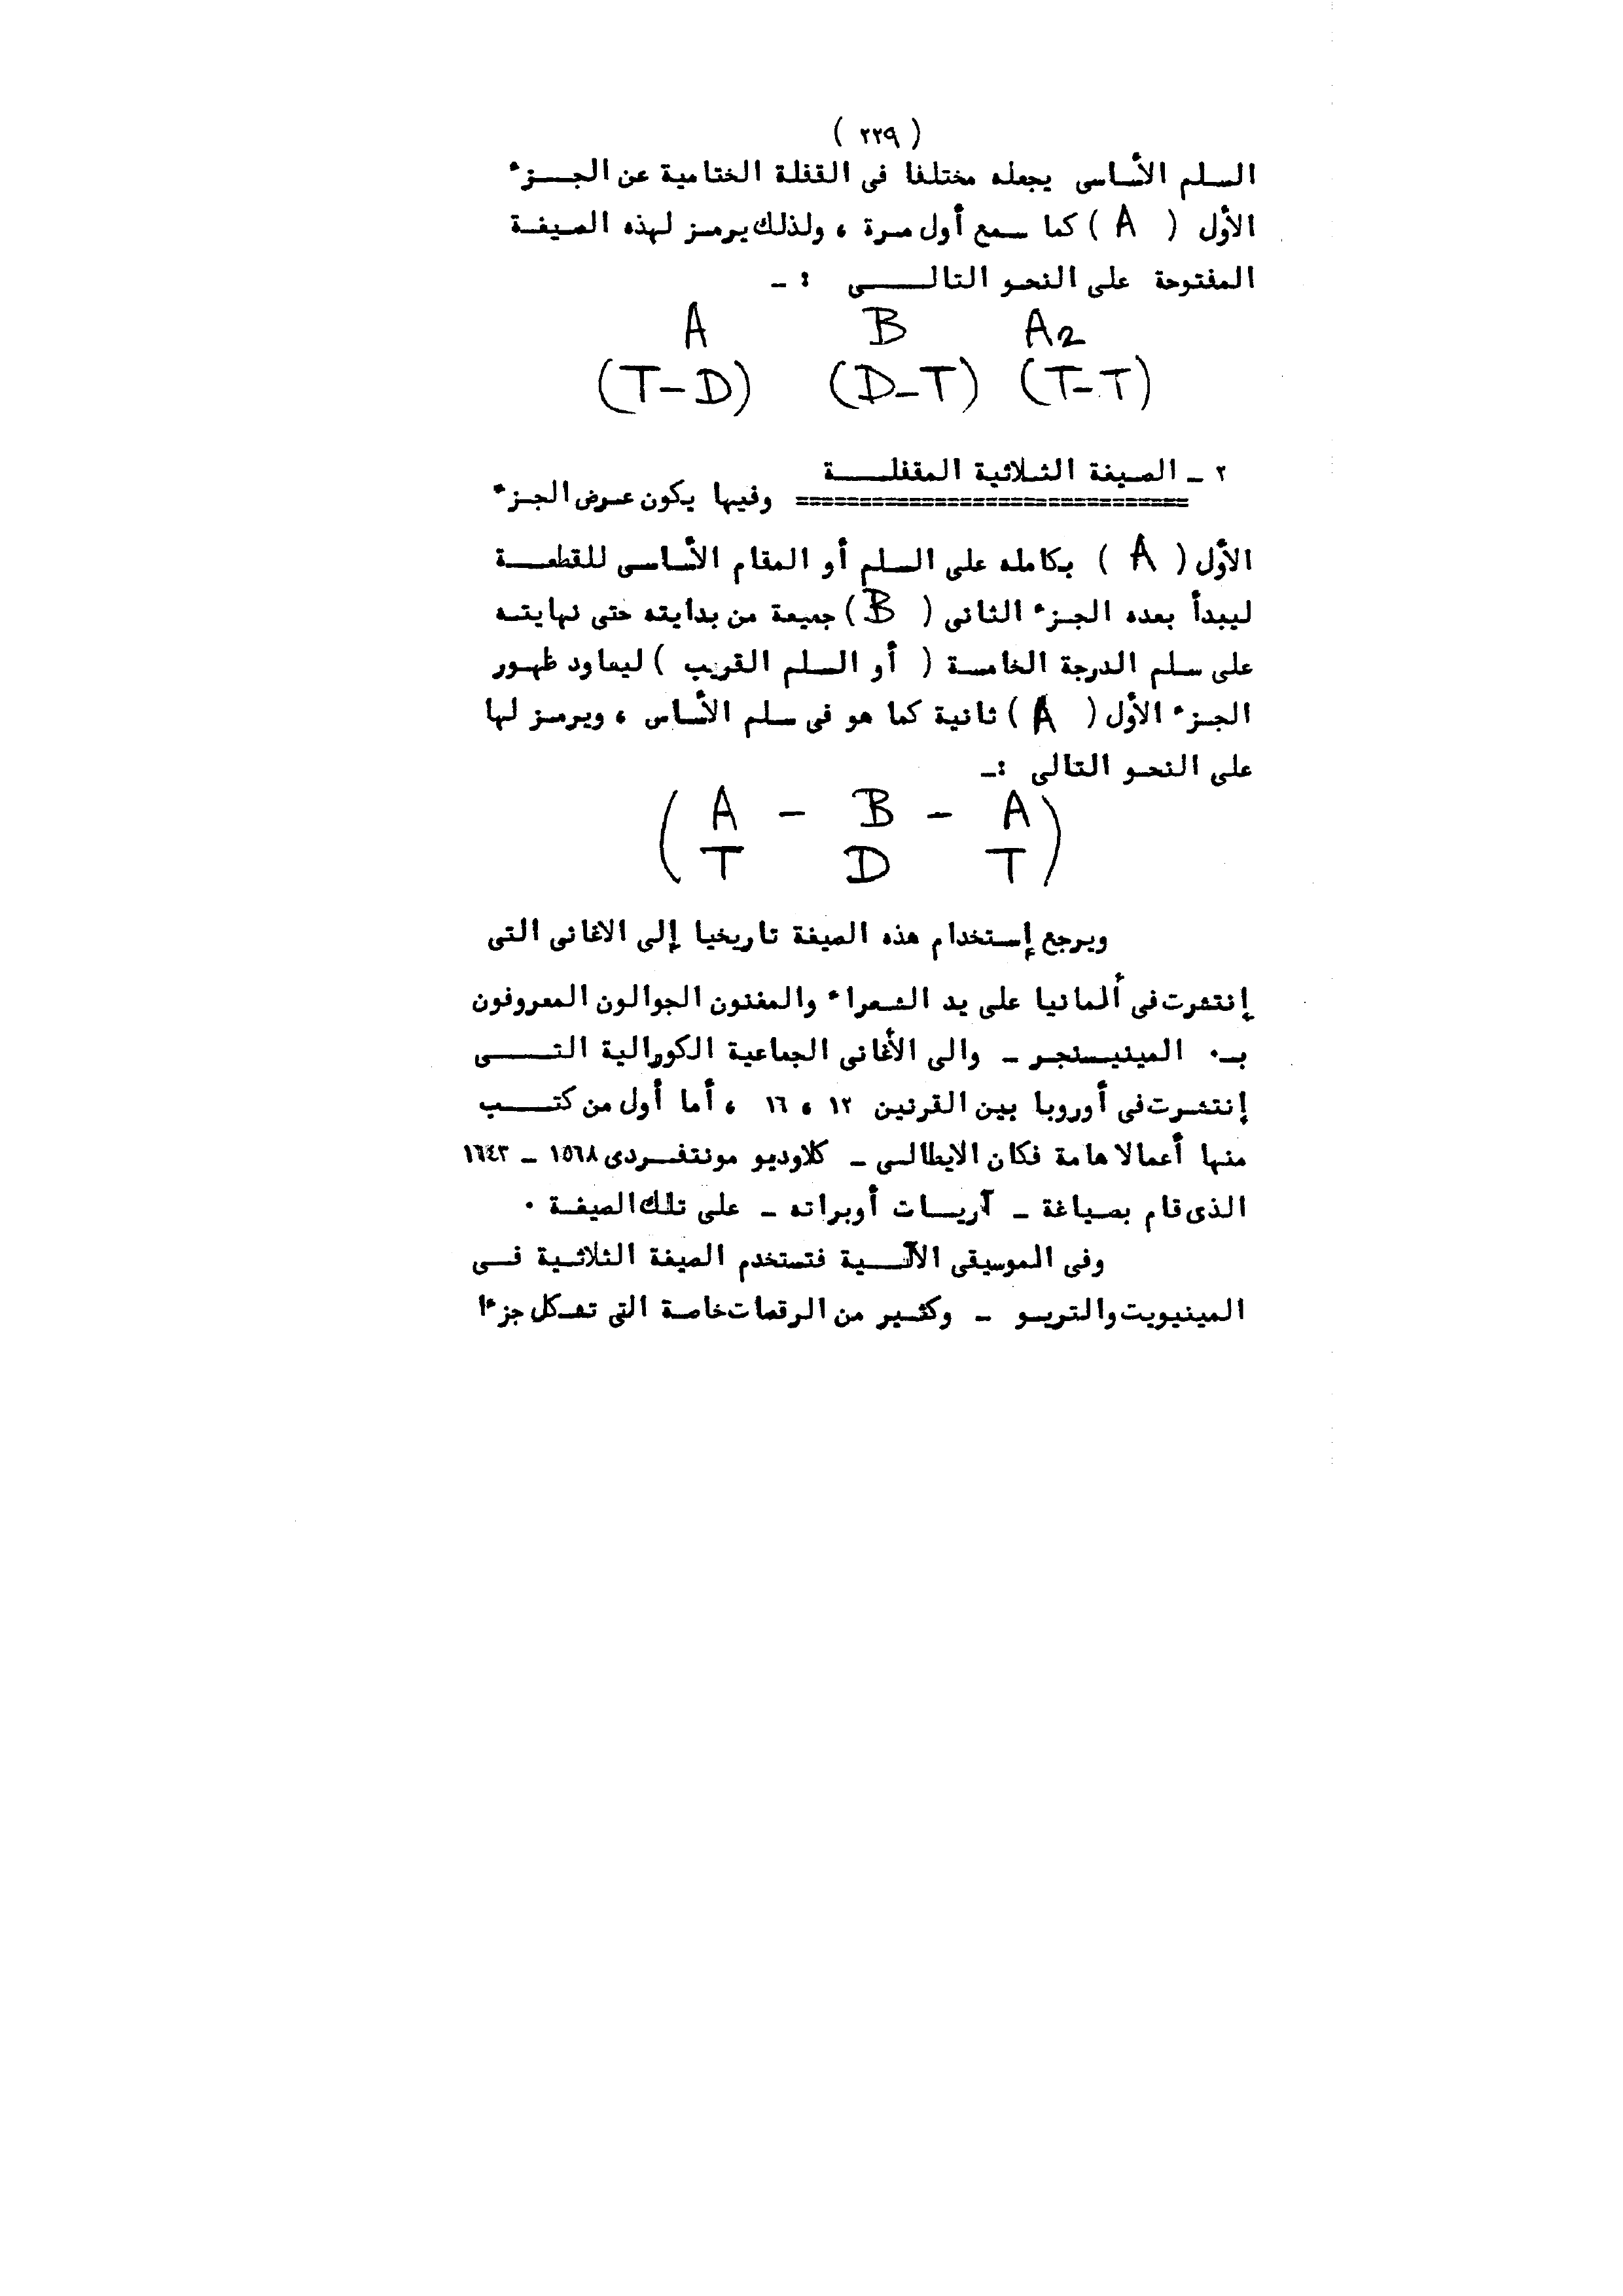 ( ٢٢٩ )
السلم الأساسى يجعله مختلفا فى القفلة الختامية عن الجـــزء
الأول ( A ) كما سمع أول مرة ، ولذلك يرمز لهذه الصيغة
المفتوحة على النحو التالـــــى : ـ
A B A2
(T-D) (D-T) (T-T)
٢ ـ الصيغة الثلاثية المقفلــــة
وفيها يكون عرض الجزء
الأول ( A ) بكامله على السلم أو المقام الأساسى للقطعــــة
ليبدأ بعده الجزء الثانى ( B ) جميعة من بدايته حتى نهايته
على سلم الدرجة الخامسة ( أو السلم القريب ) ليعاود ظهور
الجزء الأول ( A ) ثانية كما هو فى سلم الأساس ، ويرمز لها
على النحو التالى :ـ
( A - B - A )
T D T
ويرجع إستخدام هذه الصيغة تاريخيا إلى الاغانى التى
إنتشرت فى ألمانيا على يد الشعراء والمغنون الجوالون المعروفون
بـ. المينيسنجر ـ والى الأغانى الجماعية الكورالية التــــى
إنتشرت فى أوروبا بين القرنين ١٢ ، ١٦ ، أما أول من كتـــب
منها أعمالا هامة فكان الايطالى ـ كلاوديو مونتفردى ١٥٦٨ ـ ١٦٤٣
الذى قام بصياغة ـ آريات أوبراته ـ على تلك الصيغة .
وفى الموسيقى الآلـــية فتستخدم الصيغة الثلاثية فــى
المينيويت والتريو ـ وكثير من الرقصات خاصة التى تشكل جزءا